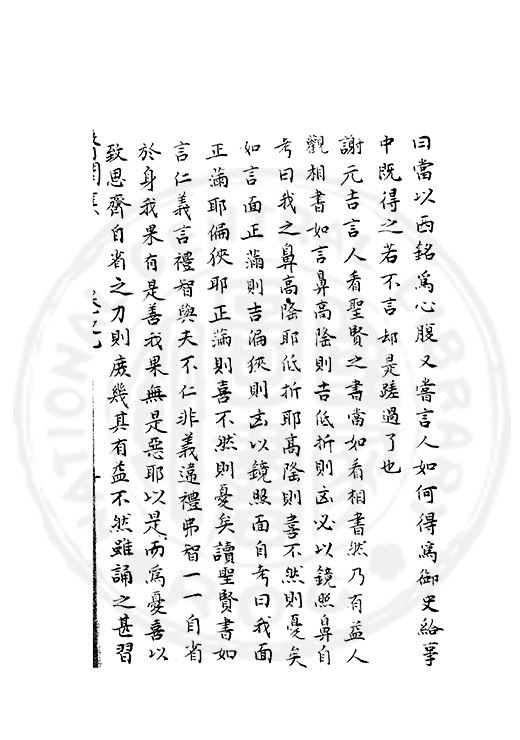 曰當以西銘爲心腹又嘗言人如何得爲御史給事
中既得之若不言却是蹉過了也
謝元吉言人看聖賢之書當如看相書然乃有益人
觀相書如言鼻高隆則吉低折則凶必以鏡照鼻自
考曰我之鼻高隆耶低折耶高隆則喜不然則憂矣
如言面正滿則吉偏狹則凶以鏡照面自考曰我面
正滿耶偏狹耶正滿則喜不然則憂矣讀聖賢書如
言仁義言禮智與夫不仁非義違禮弗智一一自省
於身我果有是善我果無是惡耶以是而爲憂喜以
致思齊自省之力則庶幾其有益不然雖誦之甚習